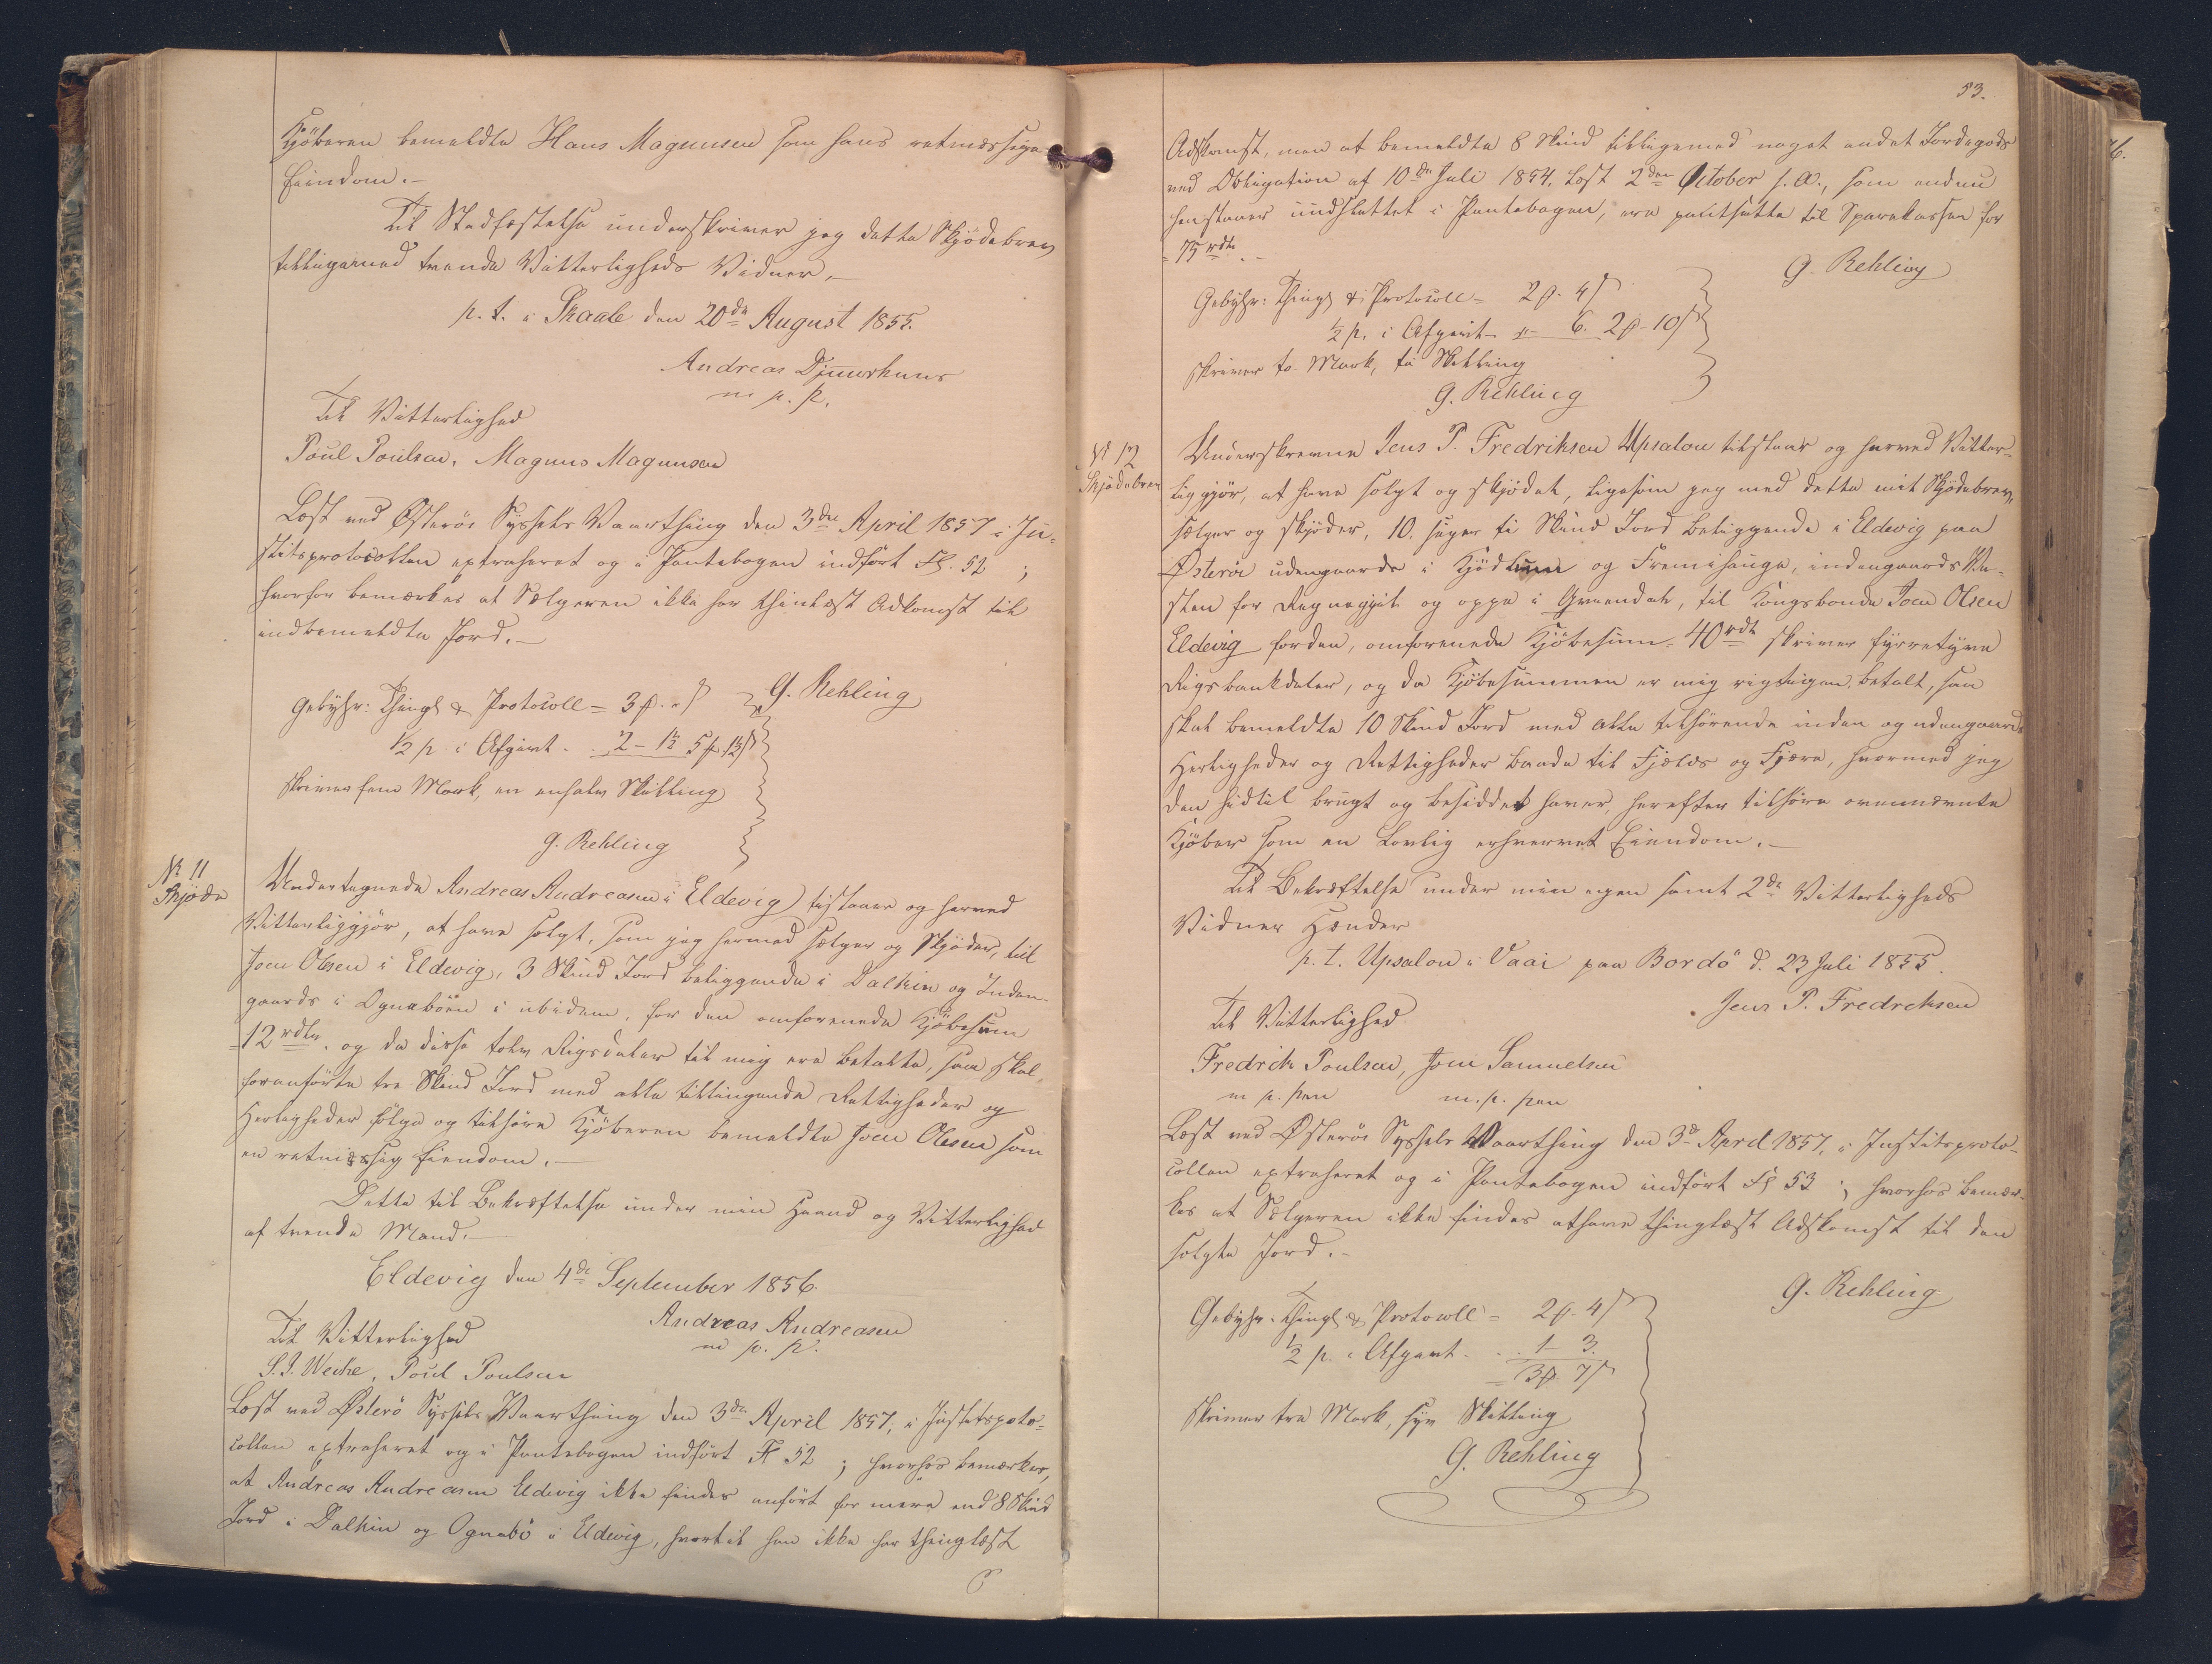 Kjöberen bemeldte Hans Magnusen som hans retmæssige
Eiendom.–
Til Stadfæstelse underskriver jeg dette Skjödebrev
tilligemed tvende Vitterligheds Vidner.–
p. t. i Skaale den 20de August 1855.
Andreas Djuurhuus
m. p. p.
Til Vitterlighed
Poul Poulsen, Magnus Magnusen
Læst ved Østerøe Syssels Vaarthing den 3die April 1857 i Ju-
stitsprotocollen extraheret og i Pantebogen indført Fl. 52 ;
hvorhos bemærkes at Sælgeren ikke har thinglæst Adkomst til
indbemeldte Jord.–
Gebyhr: Thingl & Protocoll = 3 ß
G. Rehling
½ p. i Afgivt - 2 - 1½ 5
skriver fem Mark, en enhalv Skilling
G. Rehling
No 11
Skjöde
Undertegnede Andreas Andreasen i Eldevig tilstaaer og herved
Vitterliggjör, at have solgt, som jeg hermed sælger og Skjöder, til
Joen Olsen i Eldevig, 3 Skind Jord beliggende i Dalkin og Inden-
gaards i Ognaböen i ibidem, for den omforenede Kjöbesum
12 rdlr. og da disse tolv Rigsdaler til mig ere betalte, saa skal
foranførte tre Skind Jord med alle tilliggende Rettigheder og
Herligheder fölge og tilhöre Kjöberen bemeldte Joen Olsen som
en retmæssig Eiendom.–
Dette til Bekræftelse under min Haand og Vitterlighed
af tvende Mænd.–
Eldevig den 4de September 1856.
Andreas Andreasen
m. p. p.
Til Vitterlighed
Poul Poulsen
Læst ved Østerø Syssels Vaarthing den 3die April 1857, i Justitsproto-
collen extraheret og i Pantebogen indført Fl 52 ; hvorhos bemærkes,
at Andreas Andreasen Eldevig ikke findes anført for mere end 8 Skind
Jord i Dalkin og Ognabö i Eldevig, hvortil han ikke har thinglæst
53.
Adkomst, men at bemeldte 8 Skind tilligemed noget andet Jordegods
ved Obligation af 10de Juli 1854, læst 2den October s. A., som endnu
henstaaer uudslettet i Pantebogen, ere pantsatte til Sparekassen for
75 rdlr.–
G. Rehling
Gebyhr: Thingl & Protocoll = 2 ß. 4
½ p. i Afgivt - 6. 2 ß - 10
skriver to Mark, ti Skilling
G. Rehling
No 12
Skjødebrev
Underskrevne Jens P. Fredriksen Upsalon tilstaar og herved Vitter-
liggjör, at have solgt og skjödet, ligesom jeg med dette mit Skjödebrev,
sælger og skjöder, 10. siger ti Skind Jord beliggende i Eldevig paa
Østerøe udengaards i og Fremihauga, indengaards Ve-
sten for og oppe i, til Kongsbonde Joen Olsen
Eldevig for den, omforenede Kjöbesum 40 rdlr skriver fyrretyve
Rigsbankdaler, og da Kjöbesummen er mig rigtigen betalt, saa
skal bemeldte 10 Skind Jord med alle tilhørende inden og udengaards
Herligheder og Rettigheder baade til Fjelds og Fjære, hvormed jeg
den hidtil brugt og besiddet haver, herefter tilhøre ovennævnte
Kjöber som en Lovlig erhvervet Eiendom.–
Til Bekræftelse under min egen samt 2de Vitterligheds
Vidner Hænder
p. t. Upsalon i Vaai paa Bordö d. 23 Juli 1855.
Jens P. Fredreksen
Til Vitterlighed
Fredrik Poulsen, Joen Samuelsen
m. p. pen m. p. pen
Læst ved Østerøe Syssels Vaarthing den 3die April 1857, i Justitsproto-
collen extraheret og i Pantebogen indført Fl 53 ; hvorhos bemær-
kes at Sælgeren ikke findes at have thinglæst Adkomst til den
solgte Jord.–
G. Rehling
Gebyhr. Thingl & Protocoll = 2 ß. 4
½ p. i Afgivt - 1 3.
3 ß 7
skriver tre Mark, syv Skilling
G. Rehling